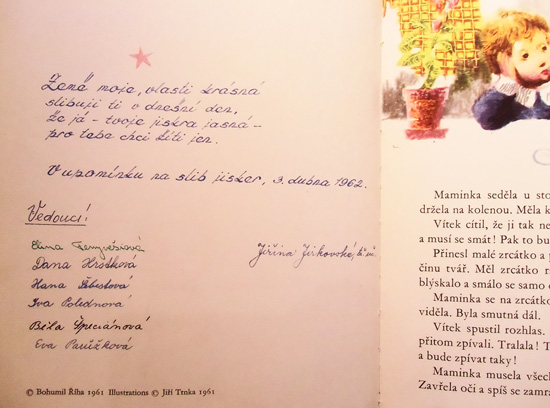 Země moje, vlasti krásná
slibuji ti v dnešní den,
že já - tvoje jiskra jasná -
pro tebe chci žíti jen.
V upomínku na slib jisker, 3. dubna 1962.
Vedoucí!
Dana Hrstková
Hana Šebestová
Iva Polednová
Běla Špeciánová
Eva Paužková
Jiřina Jirkovská,
© Bohumil Říha 1961 Illustrations © Jiří Trnka 1961
Maminka seděla u sto
držela na kolenou. Měla k
Vítek cítil, že ji tak ne
a musí se smát! Pak to bu
Přinesl malé zrcátko a p
činu tvář. Měl zrcátko r
blýskalo a smálo se samo
Maminka se na zrcátko
viděla. Byla smutná dál.
Vítek spustil rozhlas.
přitom zpívali. Tralala! T
a bude zpívat taky!
Maminka musela všec
Zavřela oči a spíš se zamra